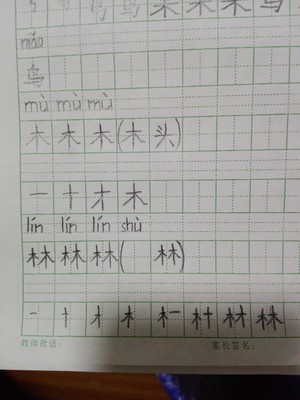 niǎo
鸟
mù mù mù
木 木 木 (木 头)
一 十 才 木
lín lín lín shù
林 林 林 ( 林)
林
教师批语： 家长签名：